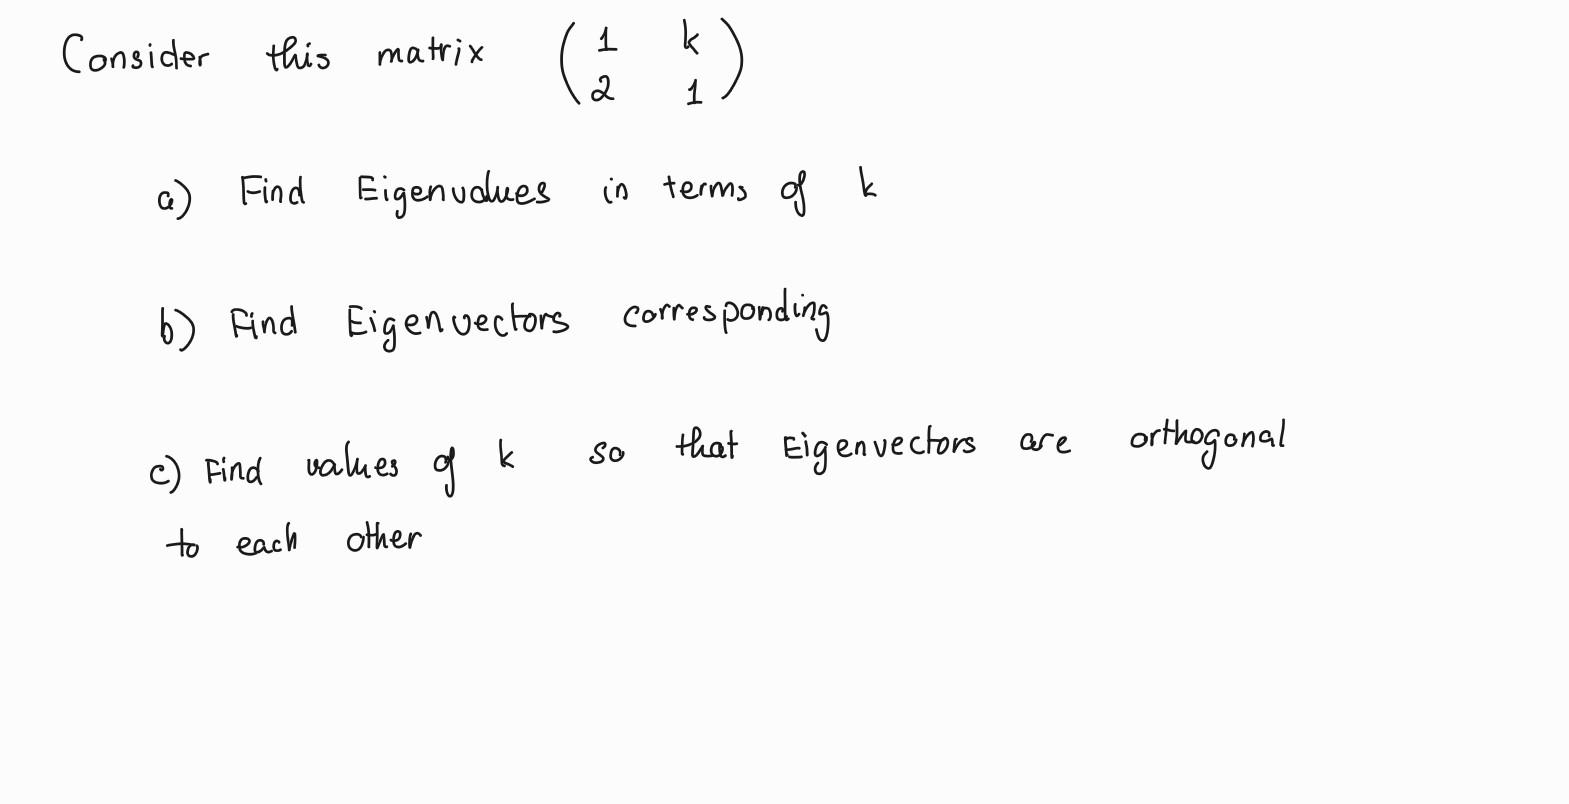 Consider this matrix (1 k
2 1)
a) Find Eigenvalues in terms of k
b) Find Eigenvectors corresponding
c) Find values of k so that Eigenvectors are orthogonal
to each other